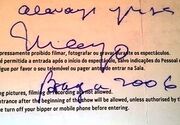 always yours
pressamente proibido filmar, fotografar ou gravar durante os espectáculos.
permitida a entrada após o início do espectáculo, salvo indicações do Pessoal
gue por favor o seu telemóvel ou pager antes de entrar na Sala.
Braga 2006
ng pictures, filming or recording are not allowed.
ntrance after the beginning of the show will be allowed, unless authorised by th
e turn off your bipper or mobile phone before entering.